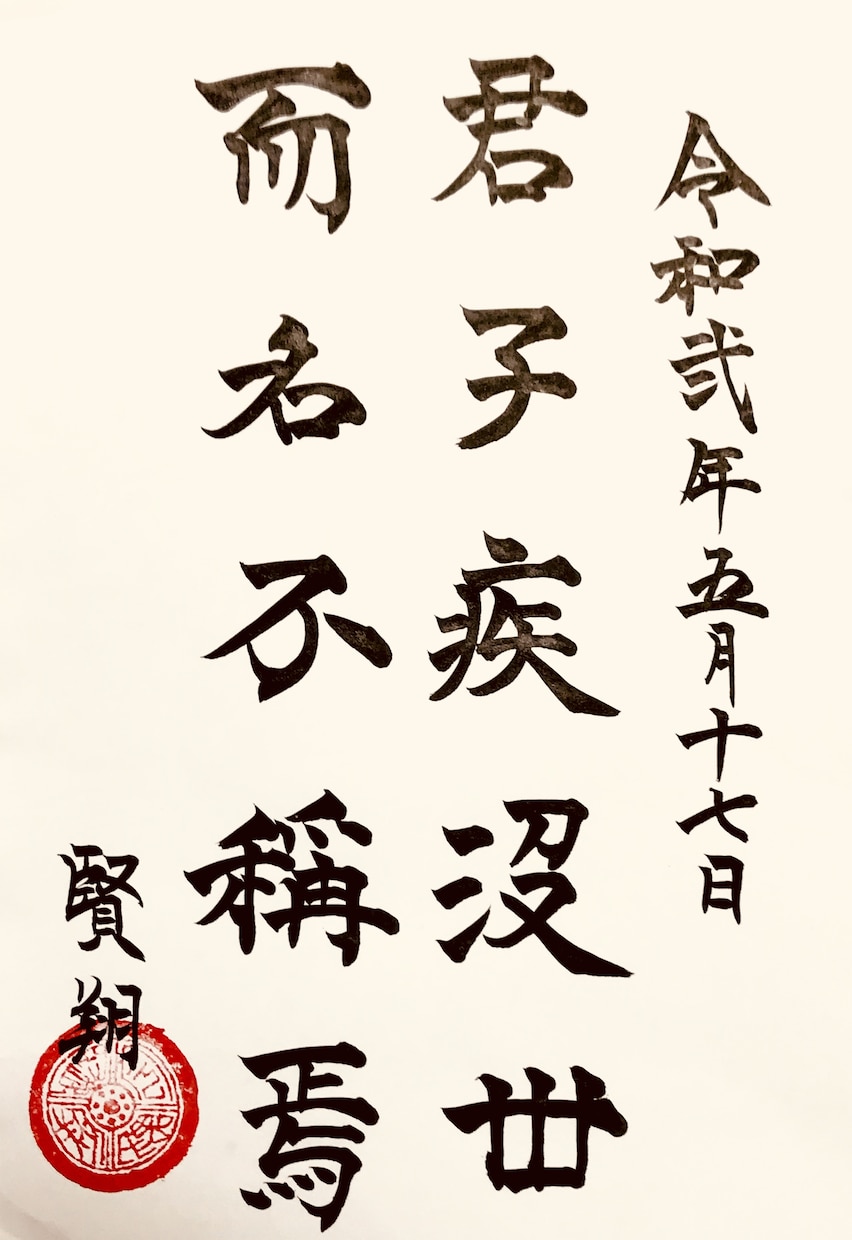 令和弐年五月十七日
君子疾沒丗
而名不稱焉
賢翔